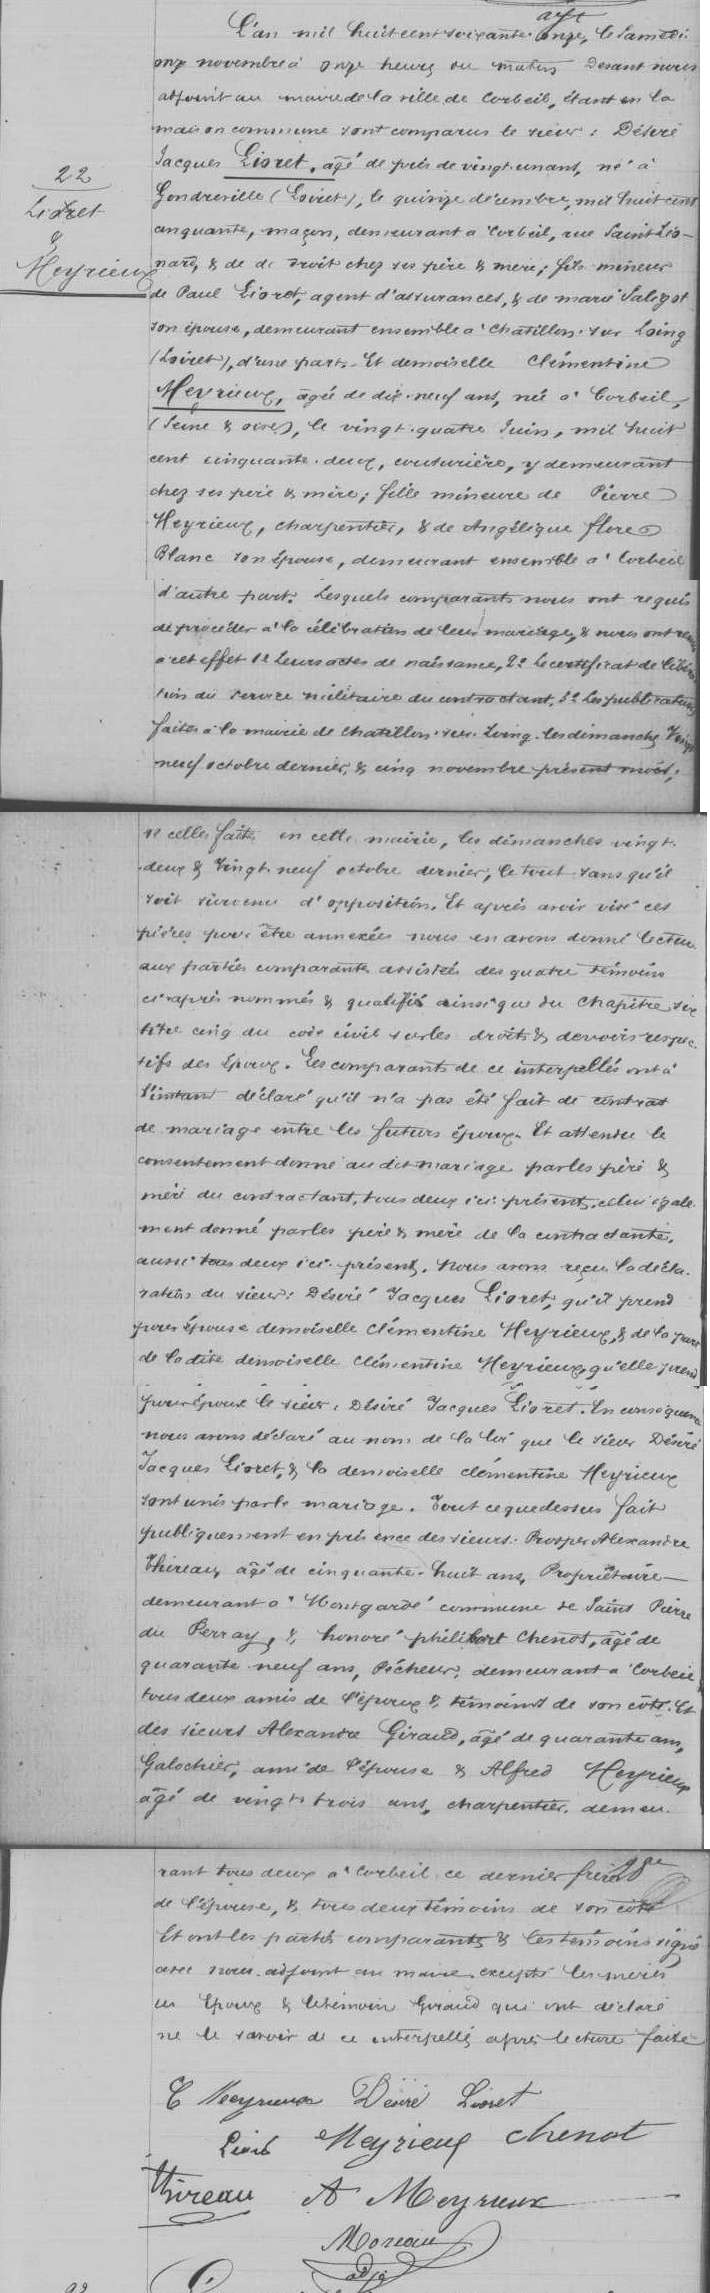 L'an mil huit cent soixante onze, le Samedi
onze novembre à onze heures du matin Devant nous
adjoint au maire de la ville de Corbeil, étant en la
maison commune sont comparus le sieur : Désiré
Jacques Lioret, âgé de près de vingt un ans, né à
22
Lioret
&
Meyrieux
Gondreville (Loiret), le quinze décembre, mil huit cent
cinquante, maçon, demeurant à Corbeil, rue Saint Léo-
nard, & de droit chez ses père & mère ; fils mineur
de Paul Lioret, agent d'assurances, & de marie Salizot
son épouse, demeurant ensemble à Chatillon-sur Loing
(Loiret), d'une part. Et demoiselle Clémentine
Meyrieux, âgée de dix-neuf ans, née à Corbeil,
(Seine & oise), le vingt-quatre Juin, mil huit
cent cinquante-deux, couturière, y demeurant
chez ses père & mère ; fille mineure de Pierre
Meyrieux, charpentier, & de Angélique flore
Blanc son épouse, demeurant ensemble à Corbeil
d'autre part. Lesquels comparants nous ont requis
de procéder à la célébration de leur mariage, & nous ont remis
à cet effet 1º Leurs actes de naissance, 2º Le certificat de libéra
tion du service militaire du contractant, 3º Les publications
faites à la mairie de Chatillon-sur-Loing les dimanches Vingt
neuf octobre dernier, & cinq novembre présent mois ;
& celles faites en cette mairie, les dimanches vingt-
deux & Vingt-neuf octobre dernier, le tout sans qu'il
soit survenu d'opposition. Et après avoir visé ces
pièces pour être annexées nous en avons donné lecture
aux parties comparantes assistées des quatre témoins
ci-après nommés & qualifiés ainsi que du chapitre six
titre cinq du code civil sur les droits & devoirs respec-
tifs des époux. Les comparants de ce interpellés ont à
l'instant déclaré qu'il n'a pas été fait de contrat
de mariage entre les futurs époux. Et attendu le
consentement donné au dit mariage par les père &
mère du contractant, tous deux ici présents, celui égale-
ment donné par les père & mère de la contractante,
aussi tous deux ici présents. Nous avons reçu la décla-
ration du sieur : Désiré Jacques Lioret, qu'il prend
pour épouse demoiselle Clémentine Meyrieux, & de la part
de ladite demoiselle Clémentine Meyrieux, qu'elle prend
pour époux le sieur : Désiré Jacques Lioret. En conséquence
nous avons déclaré au nom de la loi que le sieur Désiré
Jacques Lioret, & la demoiselle clémentine Meyrieux
sont unis par le mariage. Tout ce que dessus fait
publiquement en présence des sieurs : Prosper Alexandre
Thireau, âgé de cinquante-huit ans, Propriétaire
demeurant à Montgardé commune de Saint Pierre
du Perray, & honoré philibert Chenot, âgé de
quarante neuf ans, Pêcheur, demeurant à Corbeil
tous deux amis de l'époux & témoins de son côté. Et
des sieurs Alexandre Giraud, âgé de quarante ans,
Galochier, ami de l'épouse & Alfred Meyrieux
âgé de vingt-trois ans, charpentier, demeu-
rant tous deux à Corbeil ce dernier frère
de l'épouse, & tous deux témoins de son côté
Et ont les parties comparantes & les témoins signé
avec nous adjoint au maire excepté les mères
des époux & le témoin Giraud qui ont déclaré
ne le savoir de ce interpellés après lecture faite
C Meyrieux Désiré Lioret
Lioret Meyrieux Chenot
Thireau A Meyrieux
Moreau
adj